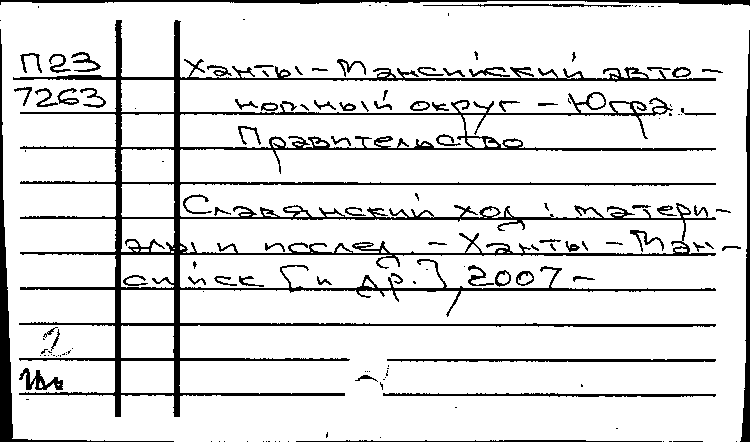 П23
7263
Ханты-Мансийский авто-
номный округ - Югра.
Правительство
Славянский ход : матери-
алы и исслед. - Ханты-Ман-
сийск [и др.], 2007-
2